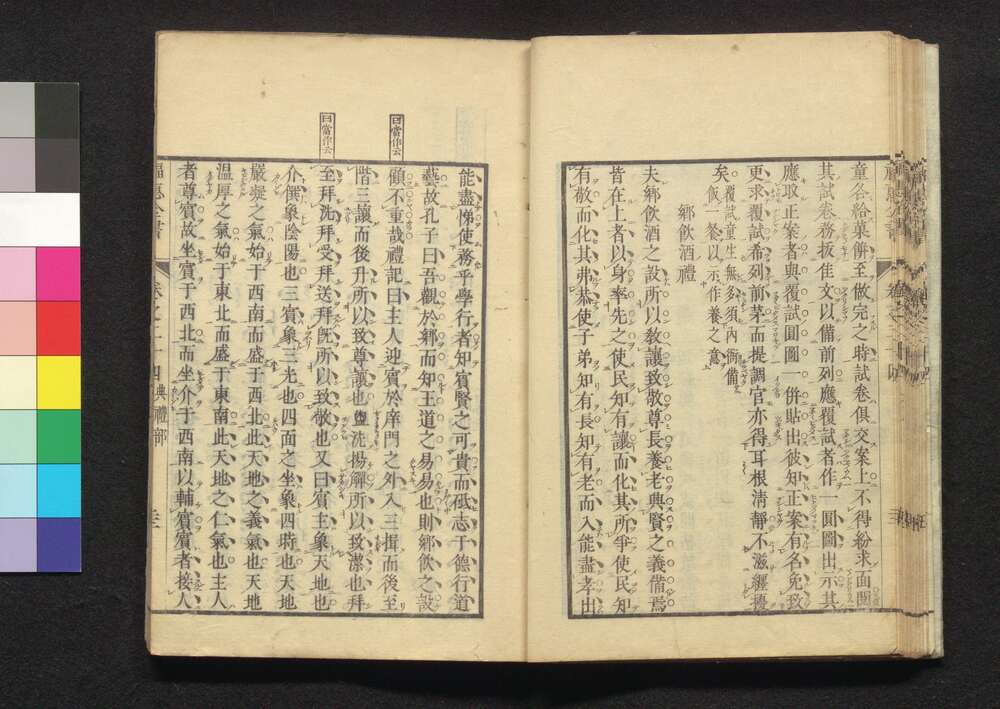 童各給菓餅至做完之時試卷俱交案上不得紛求面閲
其試卷務扳佳文以備前列應覆試者作一圓圖出示其
應取正案者與覆試圓圖一併貼出彼知正案有名免致
更求覆試希列前茅而提調官亦得耳根淸靜不滋纒擾
矣覆試童生無多須內衙備
飯一餐以示作養之意
鄉飮酒禮
夫鄉飮酒之設所以敎讓致敬尊長養老典賢之義備焉
皆在上者以身率先之使民知有讓而化其所爭使民知
有敬而化其弗恭使子弟知有長知有老而入能盡孝出
曰當作云
曰當作云
能盡悌使務乎學行者知賓賢之可貴而砥志于德行道
藝故孔子曰吾觀於鄉而知王道之易易也則鄉飮之設
顧不重哉禮記曰主人迎賓於庠門之外入三揖而後至
階三讓而後升所以致尊讓也盥洗揚觶所以致潔也拜
至拜洗拜受拜送拜旣所以致敬也又曰賓主象天地也
介僎象陰陽也三賓象三光也四面之坐象四時也天地
嚴凝之氣始于西南而盛于西北此天地之義氣也天地
溫厚之氣始于東北而盛于東南此天地之仁氣也主人
者尊賓故坐賓于西北而坐介于西南以輔賓賓者接人
福惠全書 卷之二十四 典禮部 三